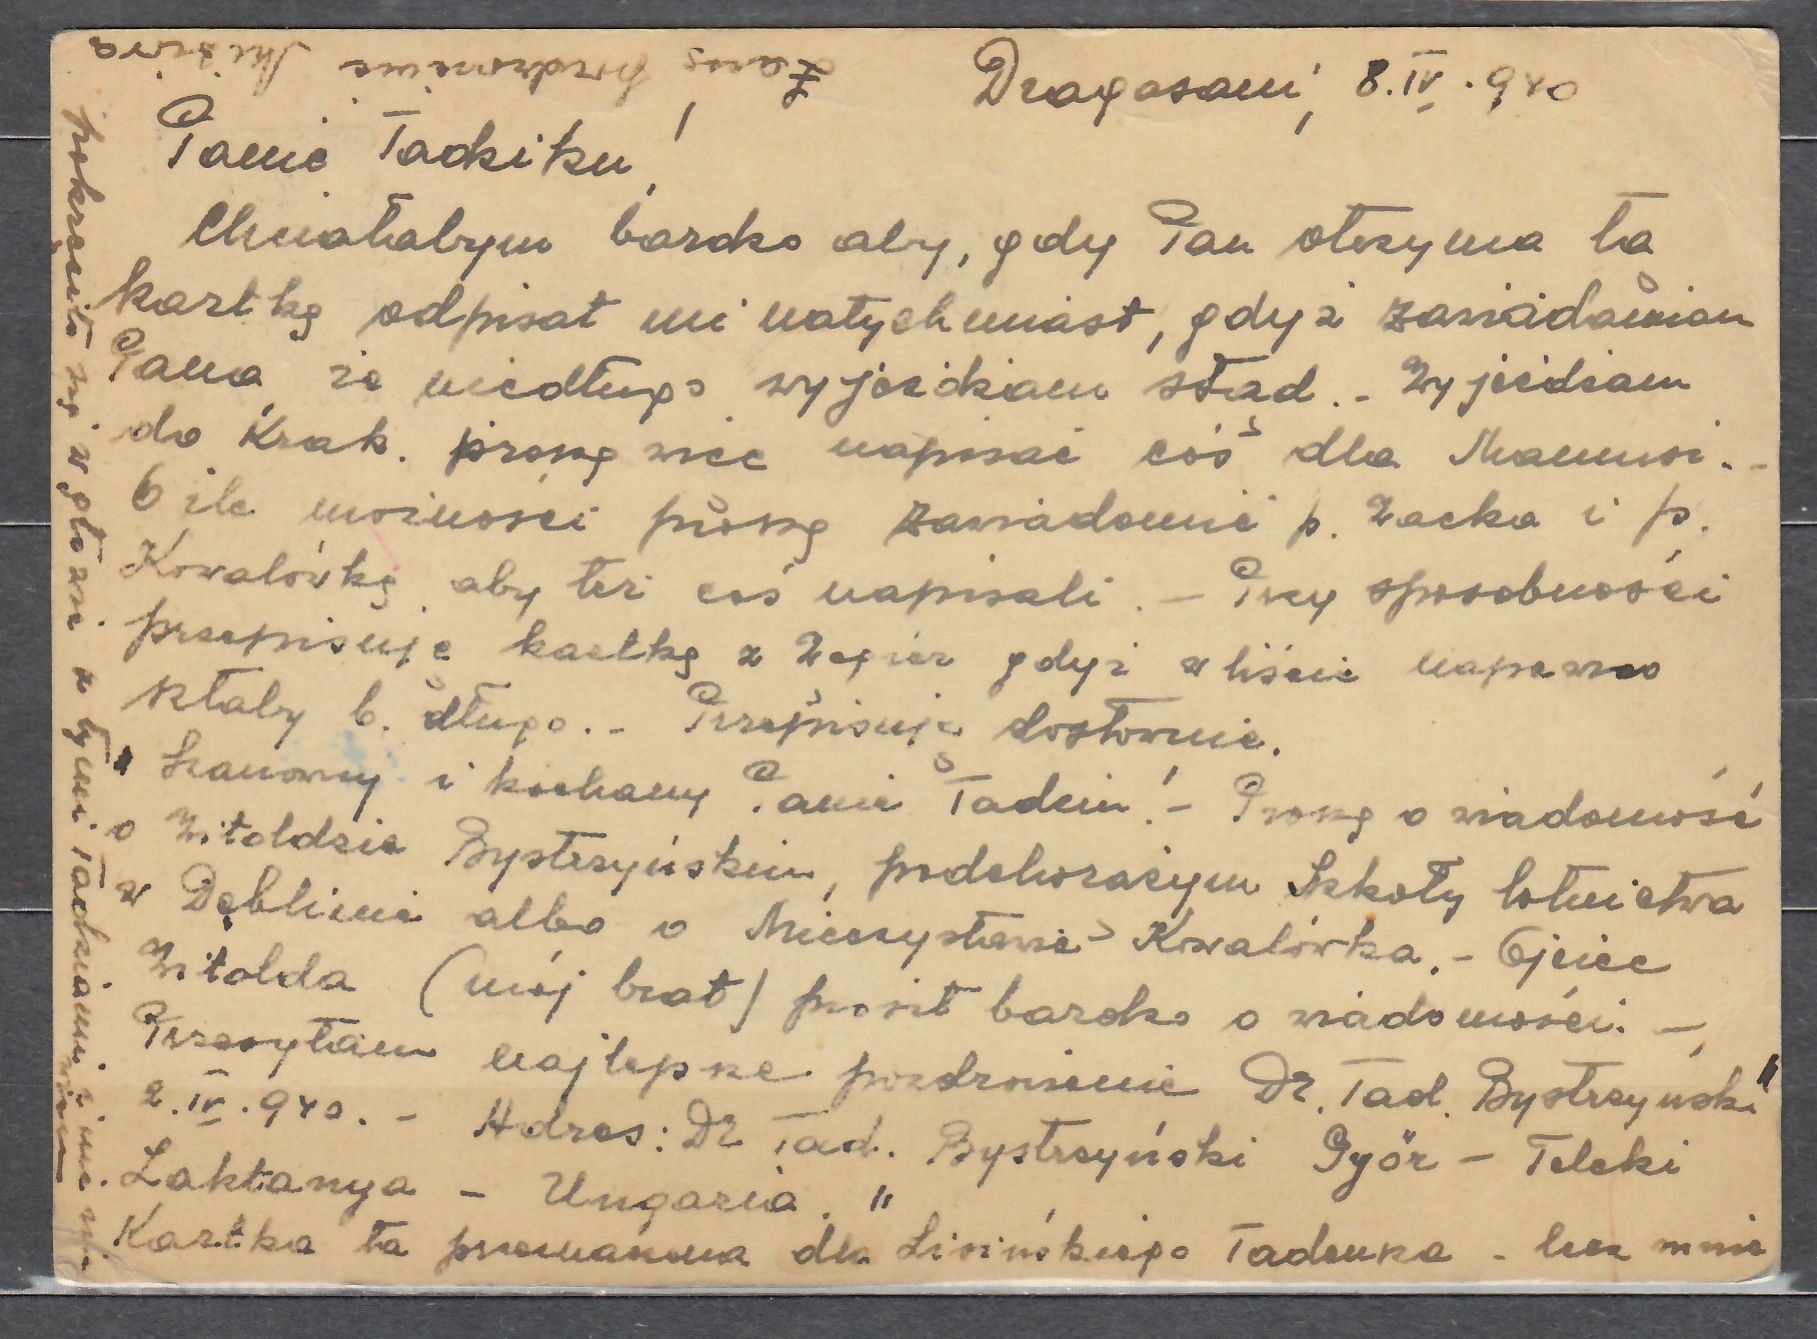 Dragasani, 8.IV.940
Panie Tadziku!
Chciałabym bardzo aby, gdy Pan otrzyma tą
kartkę odpisał mi natychmiast, gdyż zawiadamiam
Pana że niedługo wyjeżdżam stąd. - Wyjeżdżam
do Krak. proszę więc napisać coś dla Mamusi. -
O ile możności proszę zawiadomić p. Wacka i p.
Kowalówkę aby też coś napisali. - Przy sposobności
przepisuję kartkę z Węgier gdyż w liście napewno
szłaby b. długo. - Przepisuję dosłownie.
" Szanowny i kochany Panie Tadziu! - Proszę o wiadomość
o Witoldzie Bystrzyńskim, podchorążym Szkoły lotnictwa
w Dęblinie albo o Mieczysławie Kowalówka. - Ojciec
Witolda (mój brat) prosił bardzo o wiadomości. -
Przesyłam najlepsze pozdrowienie Dr. Tad. Bystrzyński"
2.IV.940. - Adres: Dr Tad. Bystrzyński Györ - Teleki
Laktanya - Ungaria. "
Kartka ta przeznaczona dla Lisińskiego Tadeusza - lecz mnie
pokręciło się w głowie z tymi Tadziami i nie wiem
Łączę pozdrowienie